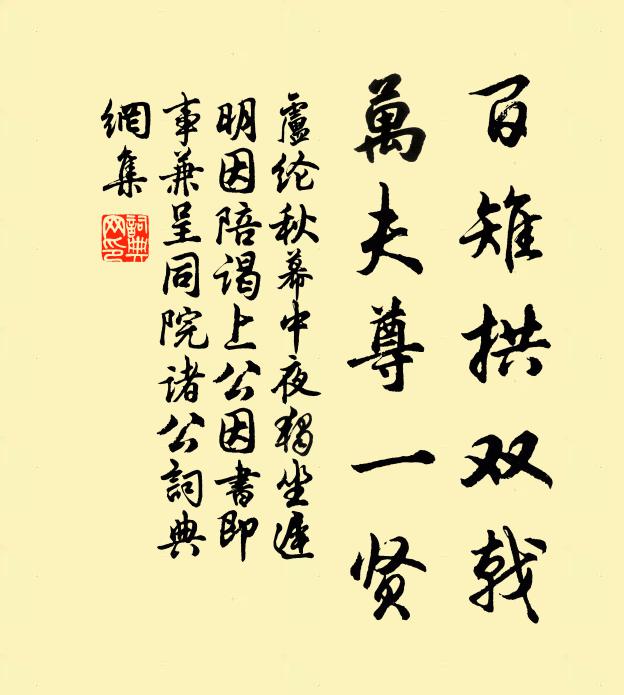 百雉拱双戟
萬夫尊一贤
盧纶秋幕中夜獨坐遲
明因陪谒上公因書即
事兼呈同院诸公詞典
網集
詞典网印